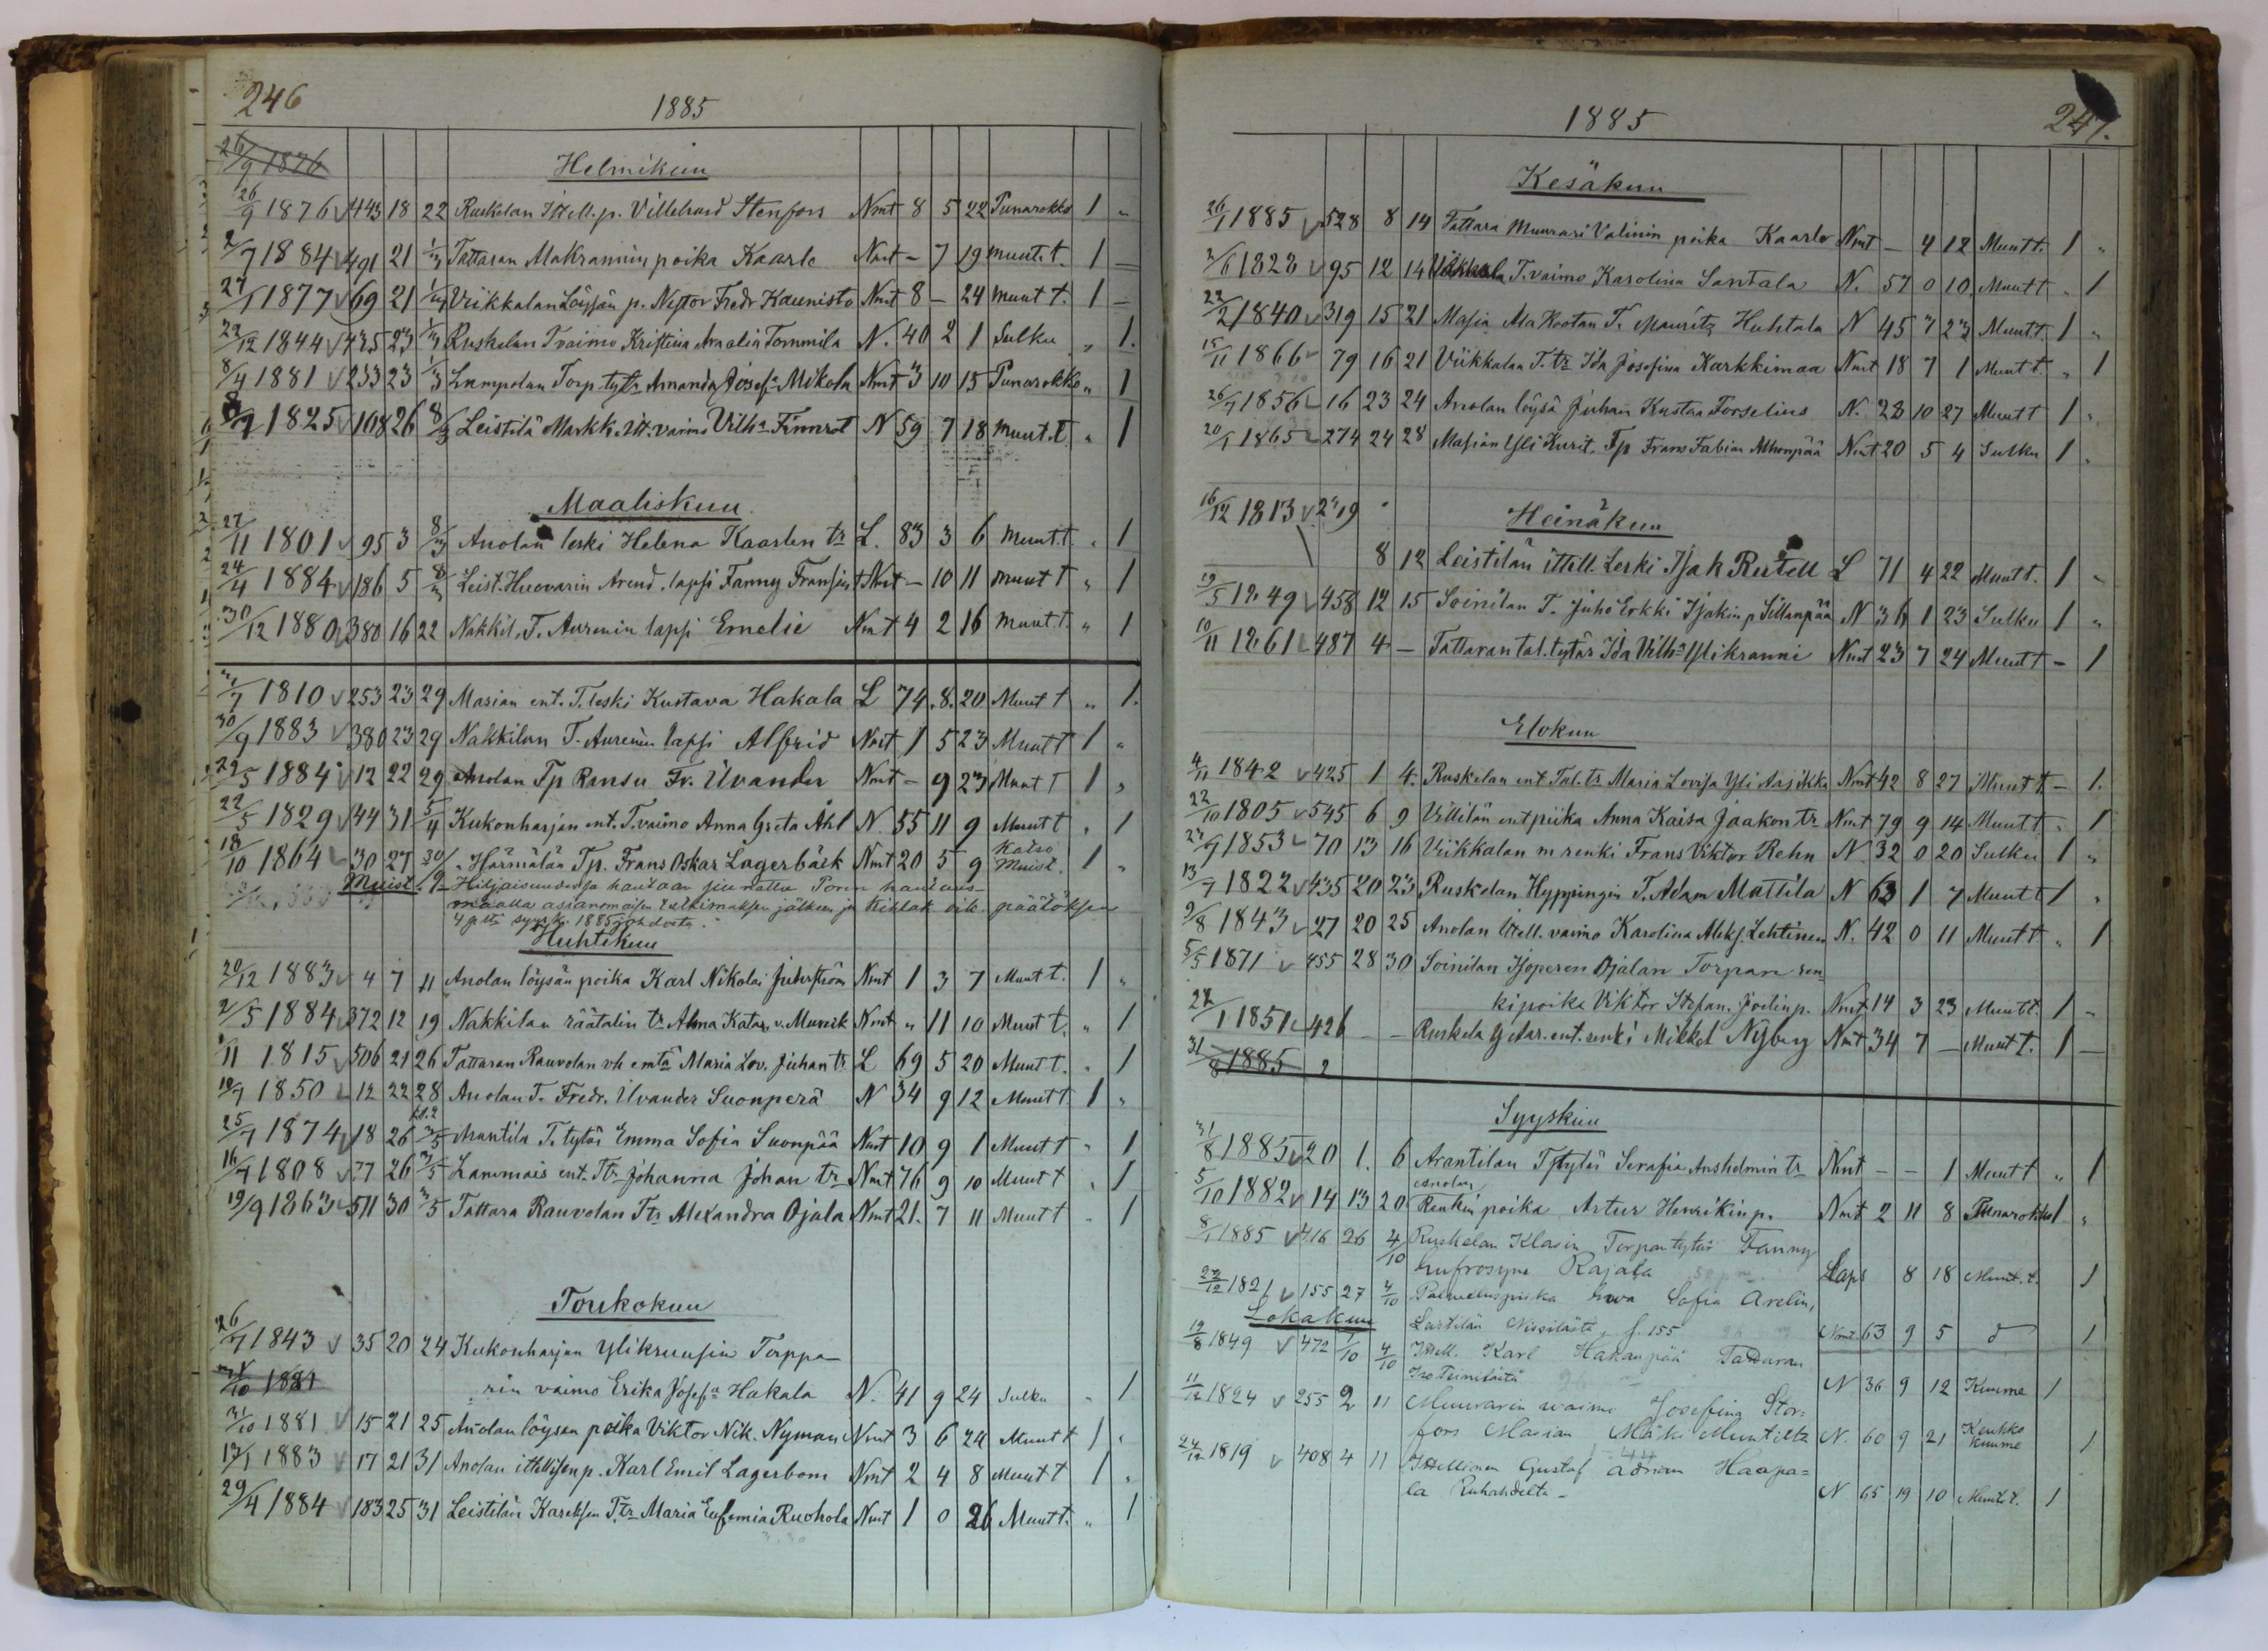 246
1885
26/9 1876
Helmikuu
26/9 1876 443 18 22 Ruskelan Itell. p. Villehard Stenfors Nmt 8 5 22 Punarokko 1 "
2/7 1884 491 21 1/3 Tattaran Makrannin poika Kaarle Nmt - 7 19 muut t. 1 -
27/1 1877 69 21 1/3 Viikkalan Löysän p. Nestor Fredr Kaunisto Nmt 8 - 24 muut t. 1 -
22/12 1844 435 23 1/3 Ruskelan T vaimo Kristina Amalia Tommila N. 40 2 1 Sulku " 1.
8/4 1881 233 23 1/3 Lampolan Torp. tytr Amanda Josefa Mikola Nmt 3 10 15 Punarokko " 1
1825 108 26 8/3 Leistilä Markk. Itt. vaimo Vilha Finnrot N 59 7 18 muut. t. " 1
Maaliskuu
27/11 1801 95 3 8/3 Anolan leski Helena Kaarlen tr L. 83 3 6 Muut. t. " 1
24/4 1884 186 5 8/3 Leist. Huovarin Arend. lapsi Fanny Nmt - 10 11 muut t " 1
30/12 1880 380 16 22 Nakkil. T. Aurenin lapsi Emelie Nmt 4 2 16 muut. t. " 1
/7 1810 253 23 29 Masian ent. T. leski Kustava Hakala L 74. 8. 20 Muut t " 1.
30/9 1883 380 23 29 Nakkilan T. Aurenin lapsi Alfrid Nmt 1 5 23 Muut t 1 "
29/5 1884 12 22 29 Anolan Tp Ransu Fr. Uvander Nmt - 9 23 Muut t 1 "
22/5 1829 44 31 5/4 Kukonharjan ent. T. vaimo Anna Greta Åhl N. 55 11 9 Muut t " 1
18/10 1864 30 27 30/9 Härmälän Tp. Frans Oskar Lagerbäck Nmt 20 5 9 Katso Muist. 1 "
Muist. Hiljaisuudessa hautaan siunattu Porin hautaus-
maalla asianomaisen tutkimuksen jälkeen ja oik. päätöksen
4 p:ltä syysk. 1885 johdosta.
Huhtikuu
20/12 1883 4 7 11 Anolan löysän poika Karl Nikolai Nmt 1 3 7 Muut t. 1 "
2/5 1884 372 12 19 Nakkilan räätalin tr Alma Katar. v. Munck Nmt " 11 10 Muut t. " 1
/11 1815 506 21 26 Tattaran Rauvolan vh emtä Maria Lov. Juhan tr L 69 5 20 Muut t. " 1
10/7 1850 12 22 28 Anolan T. Fredr. Uvander Suonperä N 34 9 12 Muut t 1 "
25/7 1874 18 26 3/5 Arantila T. tytär Emma Sofia Suonpää Nmt 10 9 1 Muut t " 1
16/7 1808 77 26 3/5 Lammais ent. Ttr Johanna Johan tr Nmt 76 9 10 Muut t " 1
19/9 1863 511 30 3/5 Tattara Rauvolan Ttr Alexandra Ojala Nmt 21. 7 11 Muut t " 1
Toukokuu
26/7 1843 35 20 24 Kukonharjan Ylikruusin Torppa-
/10 1881 rin vaimo Erika Josefa Hakala N. 41 9 24 Sulku " 1
31/10 1881 15 21 25 Anolan löysän poika Viktor Nik. Nyman Nmt 3 6 24 Muut t 1 "
13/1 1883 17 21 31 Anolan ittellisen p. Karl Emil Lagerbom Nmt 2 4 8 Muut t 1 "
29/4 1884 183 25 31 Leistilän Kareksen T. tr Maria Eufemia Ruohola Nmt 1 0 26 Muut t. " 1
1885
247.
Kesäkuu
26/1 1885 528 8 14 Tattara Muurari Valinin poika Kaarlo Nmt - 4 12 Muut t. 1 "
2/6 1828 95 12 14 T. vaimo Karolina Santala N. 57 0 10 Muut t " 1
22/2 1840 319 15 21 Masia Ala Kootan T. Mauritz Huhtala N 45 3 23 Muut t. 1 "
15/11 1866 79 16 21 Viikkalan T. tr Ida Josefina Karkkimaa Nmt 18 7 1 Muut t. " 1
26/7 1856 16 23 24 Anolan löysä Juhan Kustaa Forselius N. 28 10 27 Muut t 1 "
20/1 1865 274 24 28 Masian Yli Kurit. Tp Frans Fabian Nmt 20 5 4 Sulku 1 "
16/12 1813 219
Heinäkuu
8 12 Leistilän ittell. Leski Isak Rutell L 71 4 22 Muut t. 1 "
19/5 1849 458 12 15 Soinilan T. Juho Erkki Isakin p Sillanpää N 36 1 23 Sulku 1 "
10/11 1861 487 4 - Tattaran tal. tytär Ida Vilha Ylikranni Nmt 23 7 24 Muut t - 1
Elokuu
4/11 1842 425 1 4. Ruskelan ent Tal. tr Maria Lovisa Yli Nmt 42 8 27 Muut t - 1.
22/10 1805 545 6 9 Villilän ent piika Anna Kaisa Jaakon tr Nmt 79 9 14 Muut t " 1
23/9 1853 70 13 16 Viikkalan m renki Frans Viktor Rehn N. 32 0 20 Sulku 1 "
13/7 1822 435 20 23 Ruskelan Hyppingin T. Adam Mattila N 63 1 7 Muut t 1 "
9/8 1843 27 20 25 Anolan Itell. vaimo Karolina Aleks. Lehtinen N. 42 0 11 Muut t " 1
5/5 1871 455 28 30 Soinilan Isoperen Ojalan Torpan ren
kipoika Viktor Stefan. Joelin p. Nmt 14 3 23 Muut t. 1 "
28/1 1851 426 - - Ruskela ent. renki Mikkel Nyberg Nmt 34 7 - Muut t. 1 -
31/8 1885 2
Syyskuu
31/8 1885 20 1. 6 Arantilan Tp tytär Serafia Anshelmin tr Nmt - - 1 Muut t " 1
5/10 1882 14 13 20 Anolan Renkin poika Artur Henrikin p. Nmt 2 11 8 Punarokko 1 "
8/1 1885 416 26 4/10 Ruskelan Klasin Torpan tytär Fanny
Eufrosyne Rajala Laps 8 18 Muut. t. 1
22/12 1821 155 27 4/10 Palveluspiika Eva Sofia Arelin,
Lokakuu Leistilän f. 155 Nmt 63 9 5 1
19/8 1849 472 1/10 4/10 Itell. Karl Hakanpää Tattaran
N 36 9 12 Kuume 1
11/12 1824 255 2 11 Muurarin vaimo Josefina Stor=
fors Masian Mäki N. 60 9 21 Keuhko kuume 1
24/12 1819 408 4 11 Itellinen Gustaf Adrian Haapa=
la N 65 19 10 Muut. t. 1